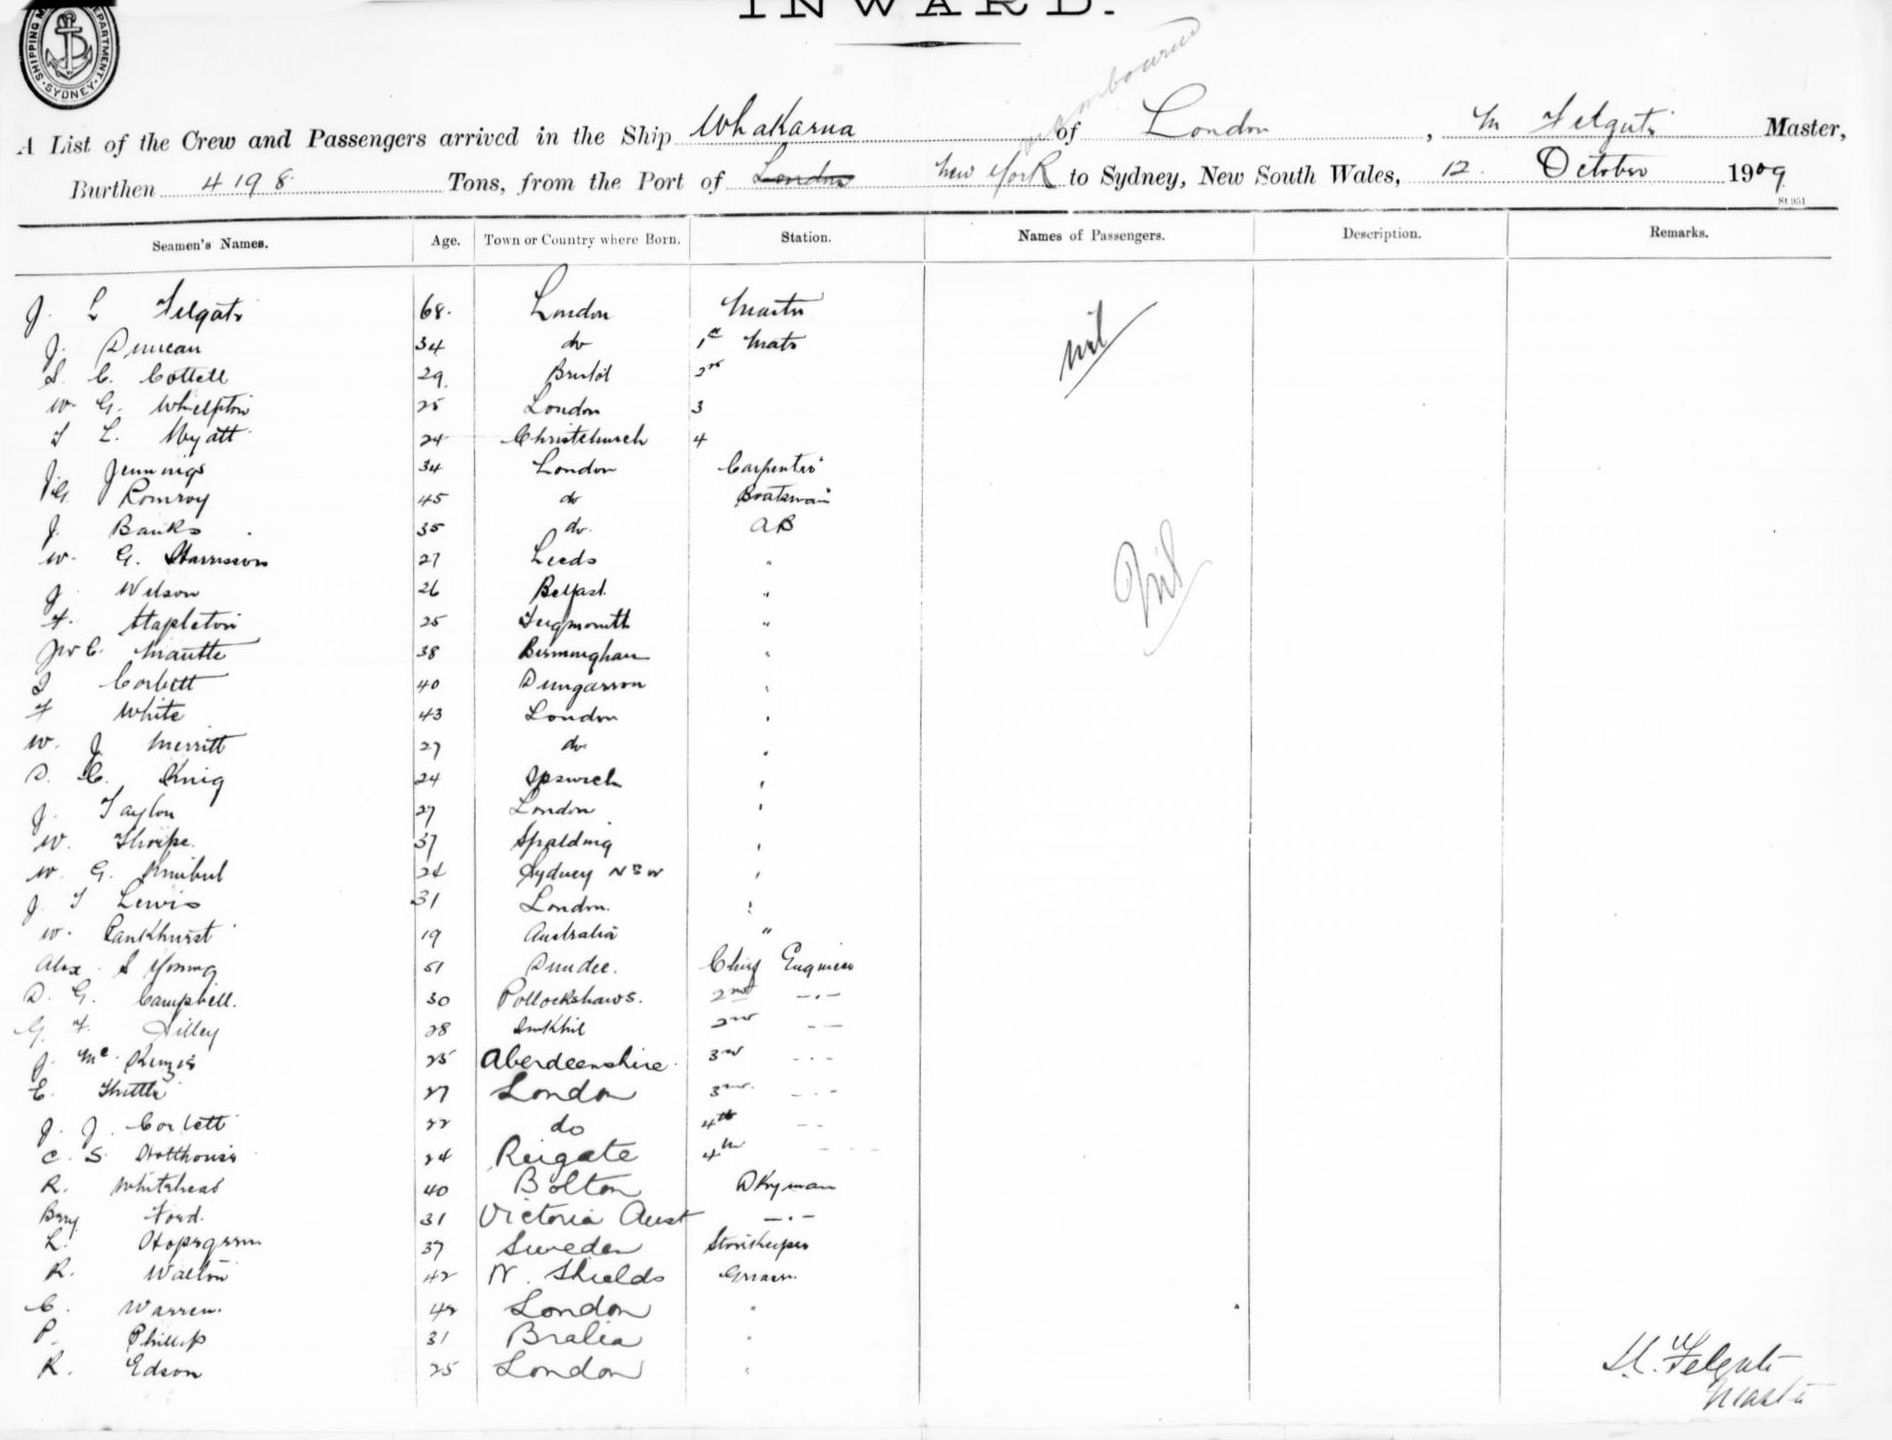 INWARD.
SHIPPING M DEPARTMENT SYDNEY
A List of the Crew and Passengers arrived in the Ship Whakarua of London, Master,
Burthen 4198 Tons, from the Port of London New York to Sydney, New South Wales, 12 October 1909
St 951
Seamen's Names. Age. Town or Country where Born. Station. Names of Passengers. Description. Remarks.
J. L Felgate 68. London Master nil
J. Duncan 34 do 1st Mate
S. C. Cottell 29 Bristol 2nd
W. G. Whelpton 25 London 3
L. Wyatt 24 Christchurch 4
J. Jennings 34 London Carpenter
G. Pomroy 45 do Boatswain
J. Banks 35 do. AB
W. G. Harrisson 27 Leeds "
J. Wilson 26 Belfast " Nil
F. Stapleton 25 Teignmouth "
38 Birmingham "
Corbett 40 Dungarvon "
F White 43 London "
W. J. Merritt 27 do "
D. C. King 24 Ipswich "
J. Taylor 27 London "
W. Thorpe. 37 Spalding "
W. G. 24 Sydney NSW "
J. T Lewis 31 London. "
W. Pankhurst 19 Australia "
Alex. S Young 51 Dundee. Chief Engineer
D. G. Campbell. 30 Pollockshaws. 2nd -.-
G. F. Tilley 28 2nd --
J. McKenzie 25 Aberdeenshire. 3rd -.-
E. 27 London 3rd -.-
J. J. Corbett 22 do 4th --
C. S. Holthouse 24 Reigate 4th ---
R. Whitehead 40 Bolton Dkyman
Ford. 31 Victoria Aust -.-
L. 37 Sweden Storekeeper
R. Walton 42 N. Shields Greaser.
C. Warren. 42 London "
P. Phillip 31 "
R. Edson 25 London "
Felgate
Master